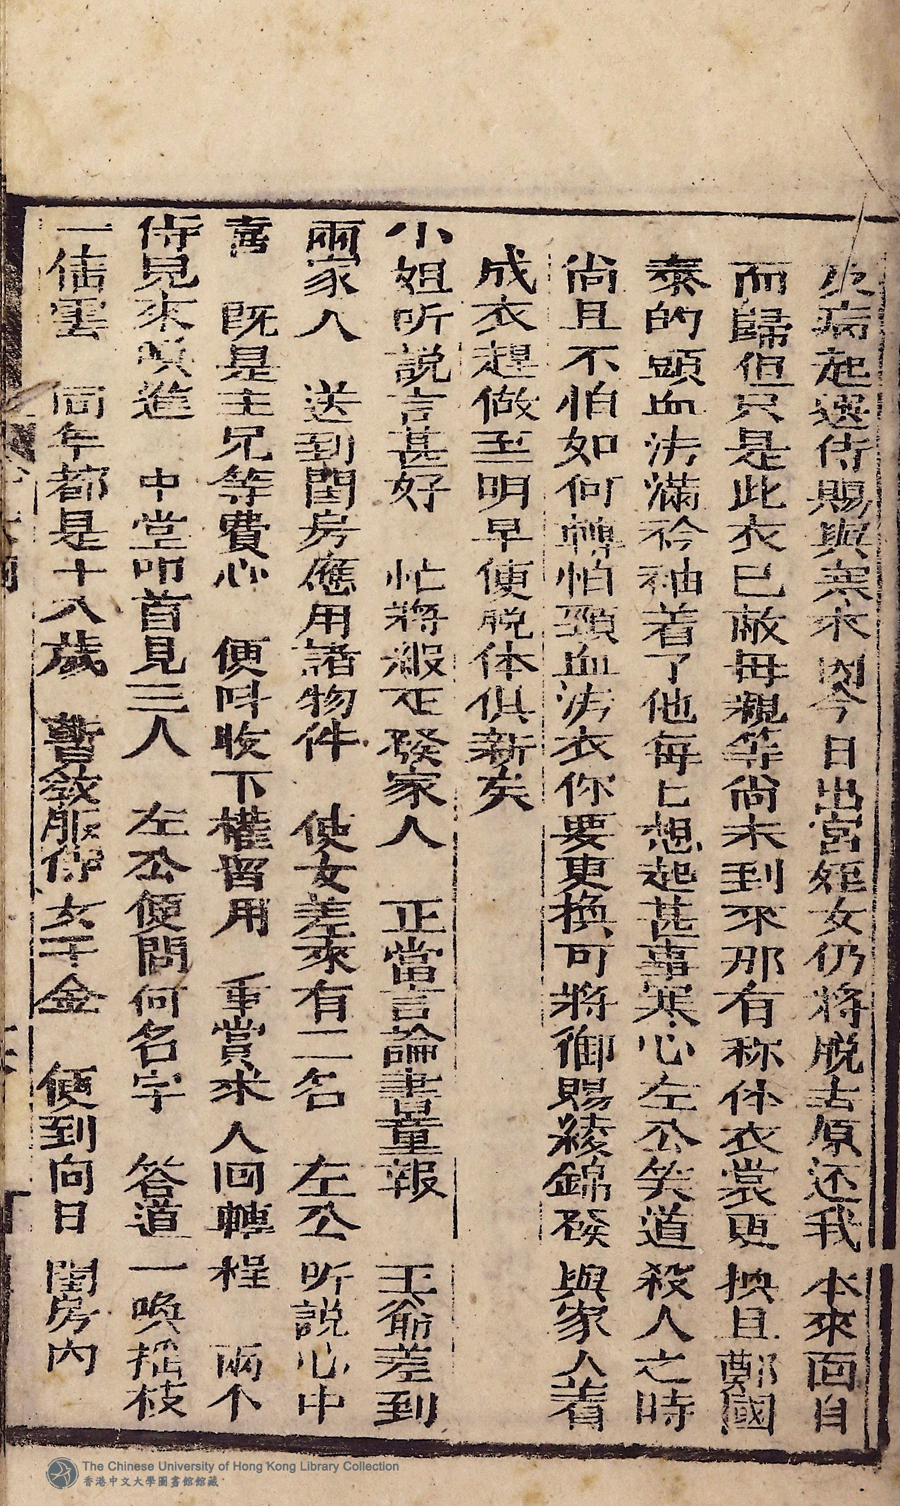 病起選侍賜與無求因今日出宮姪女仍將脫去原还我本來面目
而歸但只是此衣已敝母親等尚未到來那有称体衣裳更換且鄭國
泰的頭血沾滿衿袖着了他每匕想起甚事寒心左公笑道殺人之時
尚且不怕如何轉怕頸血沾衣你要更換可將御賜綾錦發與家人着
成衣趕做至明早便脫体俱新矣
小姐听說言甚好　忙將緞疋發家人　正當言論書童報　王爺差到
兩家人　送到閨房應用諸物件　使女差來有二名　左公听說心中
喜　既是主兄等費心　便呌收下權留用　重賞來人回轉程　兩个
侍兒來喚進　中堂叩首見三人　左公便問何名字　答道一喚摇枝
一倩雲　同年都是十八歲　暫敘服侍女千金　便到向日閨房內
The Chinese University of Hong Kong Library Collection
香港中文大學圖書館館藏